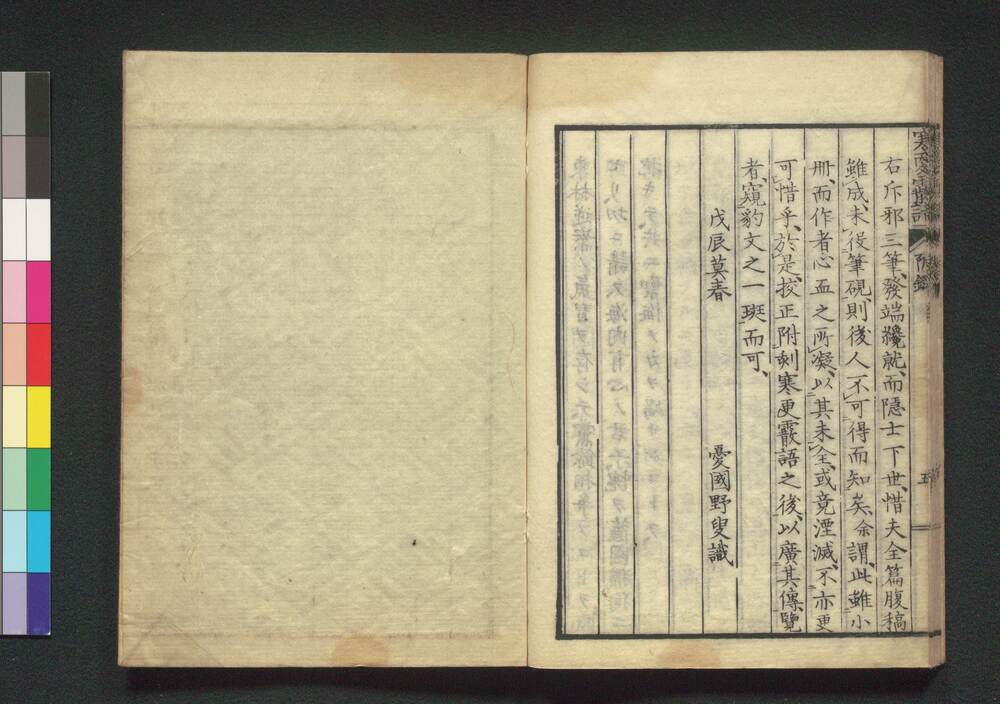 右斥邪三筆、發端纔就、而隱士下世、惜夫全篇腹稿
雖成、未役筆硯、則後人不可得而知矣、余謂、此雖小
冊、而作者心血之所凝、以其未全、或竟湮滅、不亦更
可惜乎、於是、挍正附刻寒更霰語之後、以廣其傳覽
者、窺豹文之一斑而可、
戊辰莫春
憂國野叟識
寒更霰語
附錄
五